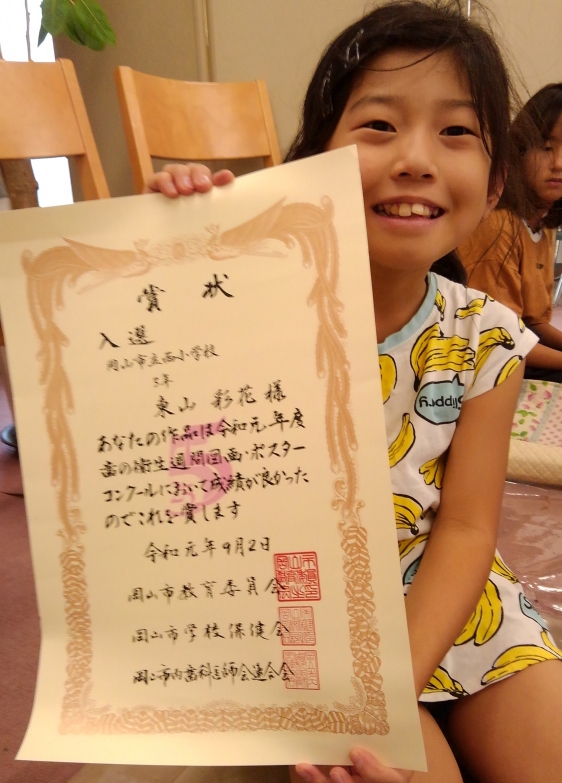 賞状
入選
岡山市立西小学校
3年
東山 彩花 様
あなたの作品は令和元年度
歯の衛生週間図画・ポスター
コンクールにおいて成績が良かった
のでこれを賞します
令和元年9月2日
岡山市教育委員会
岡山市学校保健会
岡山市内歯科医師会連合会
Slippry